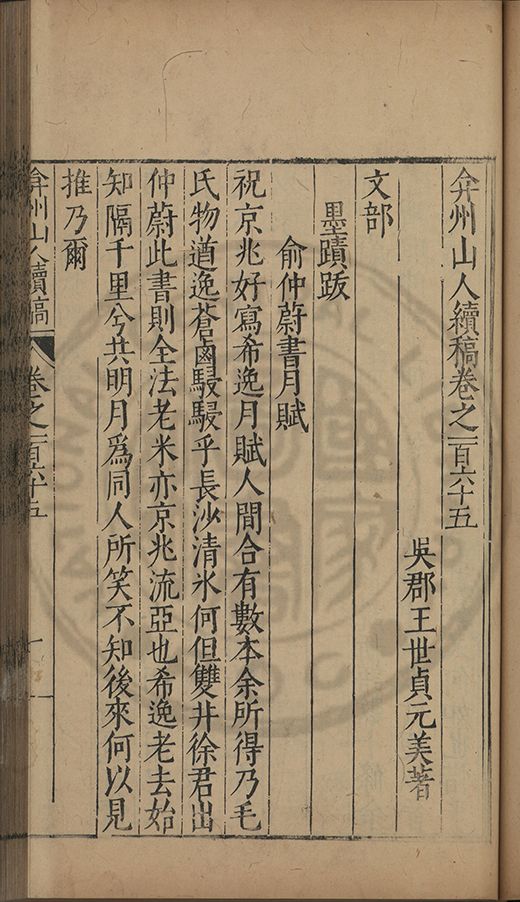 弇州山人續稿卷之一百六十五
吳郡王世貞元美著
文部
墨蹟跋
俞仲蔚書月賦
祝京兆好寫希逸月賦人間合有數本余所得乃毛
氏物遒逸蒼鹵駸駸乎長沙清氷何但雙井徐君出
仲蔚此書則全法老米亦京兆流亞也希逸老去始
知隔千里兮共明月爲同人所笑不知後來何以見
推乃爾
弇州山人續稿 卷之一百六十五 一